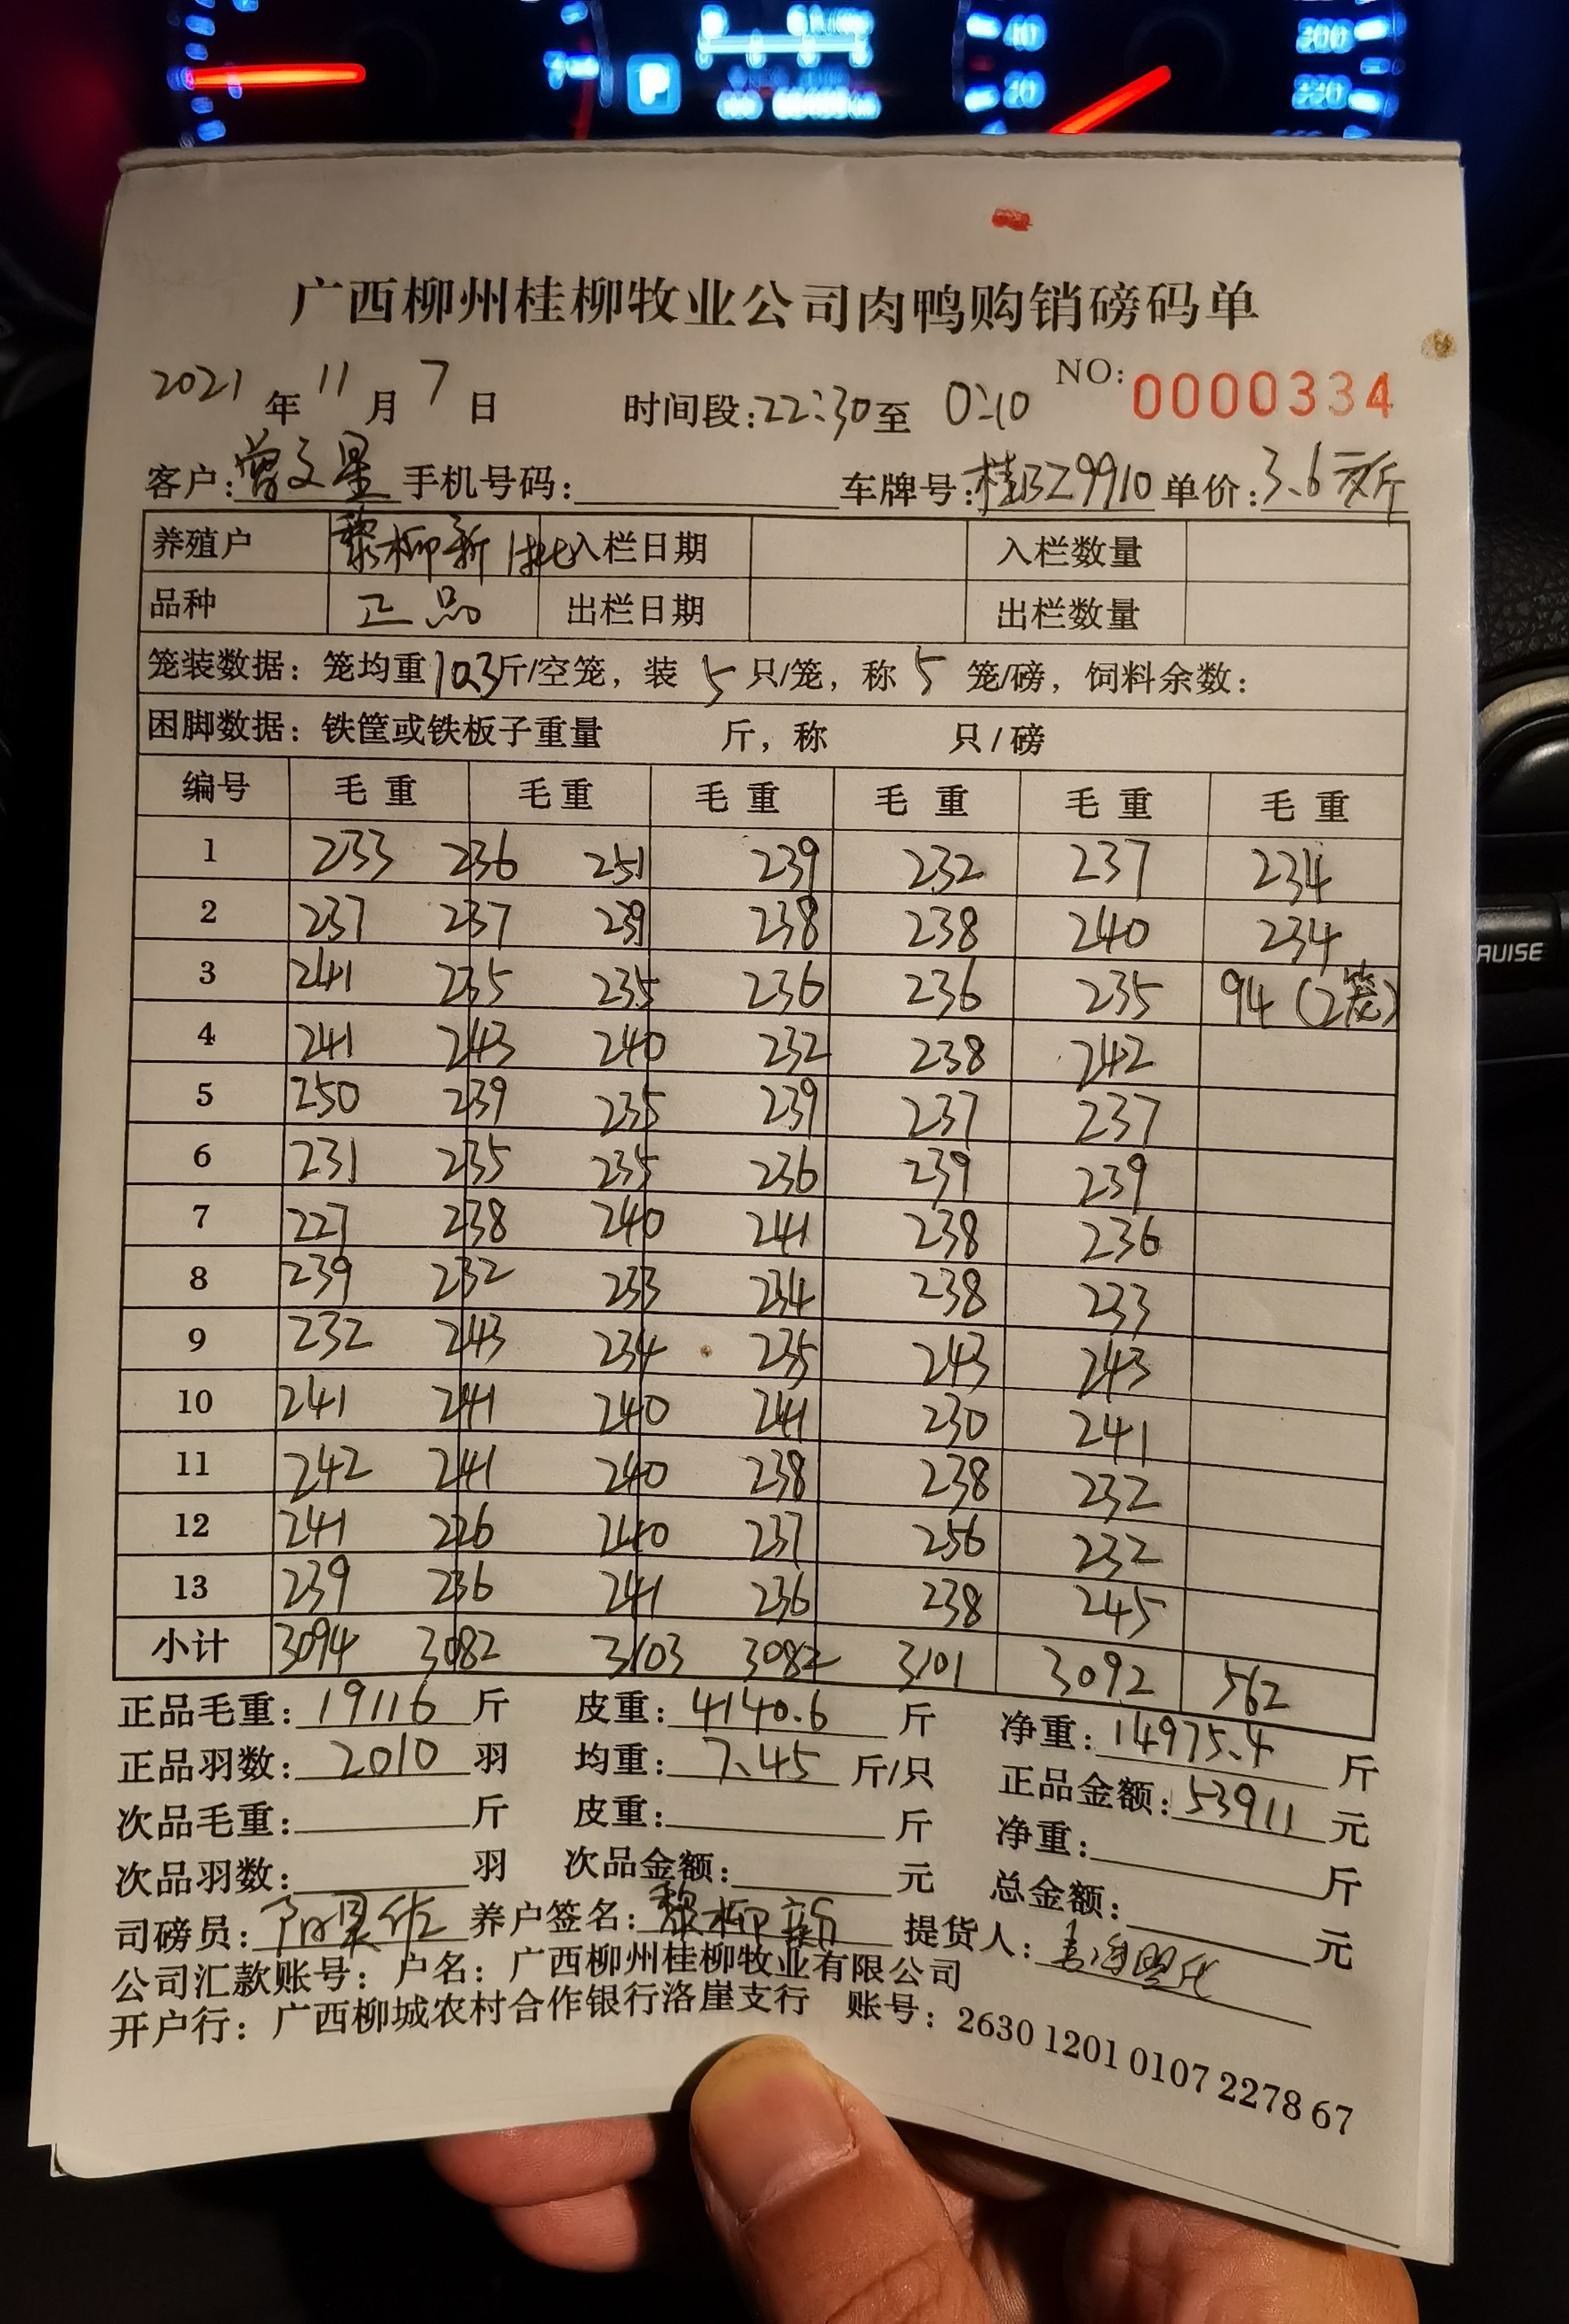 广西柳州桂柳牧业公司肉鸭购销磅码单
NO: 0000334
2021 年 11 月 7 日 时间段:22:30至 0:10
客户:曾文星 手机号码: 车牌号:桂BZ9910 单价:3.6元/斤
养殖户 黎柳新 1批 入栏日期 入栏数量
品种 正品 出栏日期 出栏数量
笼装数据：笼均重10.3斤/空笼，装 5 只/笼，称 5 笼/磅，饲料余数：
困脚数据：铁筐或铁板子重量 斤，称 只/磅
编号 毛重 毛重 毛重 毛重 毛重 毛重
1 233 236 251 239 232 237 234
2 237 237 239 238 238 240 234
3 241 235 235 236 236 235 94 (2笼)
4 241 243 240 232 238 242
5 250 239 235 239 237 237
6 231 235 235 236 239 239
7 227 238 240 241 238 236
8 239 232 233 234 238 233
9 232 243 234 235 243 243
10 241 241 240 241 230 241
11 242 241 240 238 238 232
12 241 226 240 237 256 232
13 239 236 241 236 238 245
小计 3094 3082 3103 3082 3101 3092 562
正品毛重:19116 斤 皮重:4140.6 斤 净重:14975.4 斤
正品羽数:2010 羽 均重:7.45 斤/只 正品金额:53911 元
次品毛重: 斤 皮重: 斤 净重: 斤
次品羽数: 羽 次品金额: 元 总金额: 元
司磅员: 养户签名:黎柳新 提货人:
公司汇款账号：户名：广西柳州桂柳牧业有限公司
开户行：广西柳城农村合作银行洛崖支行 账号：2630 1201 0107 2278 67
P